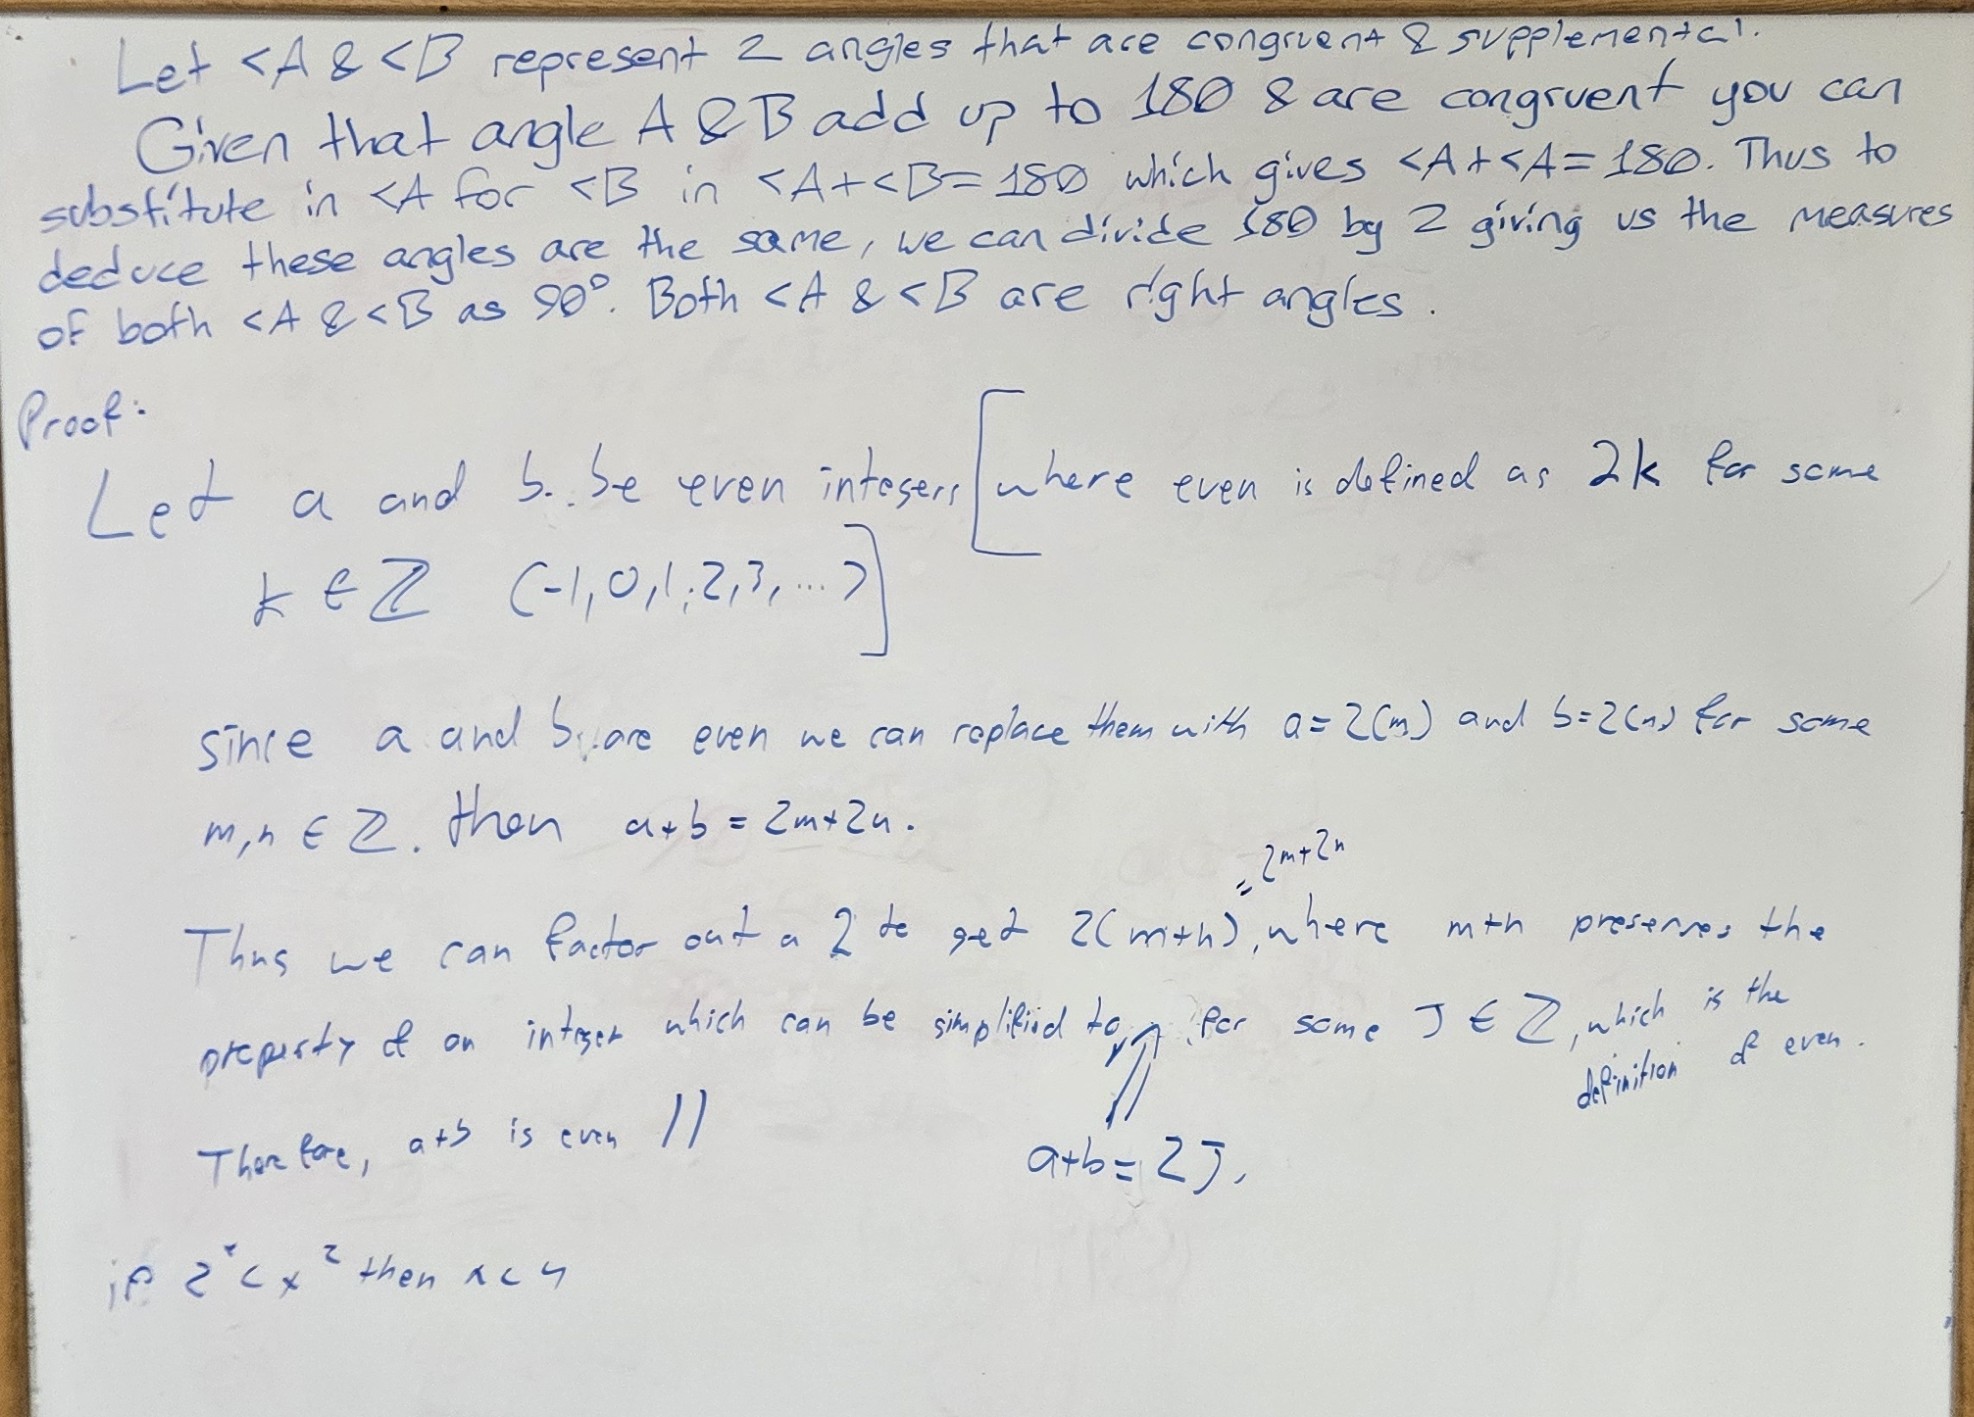 Let <A & <B represent 2 angles that are congruent & supplemental.
Given that angle A & B add up to 180 & are congruent you can
substitute in <A for <B in <A+<B=180 which gives <A+<A=180. Thus to
deduce these angles are the same, we can divide 180 by 2 giving us the measures
of both <A & <B as 90°. Both <A & <B are right angles.
Proof:
Let a and b. be even integers [where even is defined as 2k for some
k ∈ ℤ (-1,0,1,2,3,...)]
since a and b are even we can replace them with a=2(m) and b=2(n) for some
m,n ∈ ℤ. then a+b = 2m+2n.
= 2m+2n
Thus we can factor out a 2 to get 2(m+n), where m+n preserves the
property of an integer which can be simplified to, for some J ∈ ℤ, which is the
definition of even.
Therefore, a+b is even //
a+b = 2J,
if 2ˣ < x² then x<4